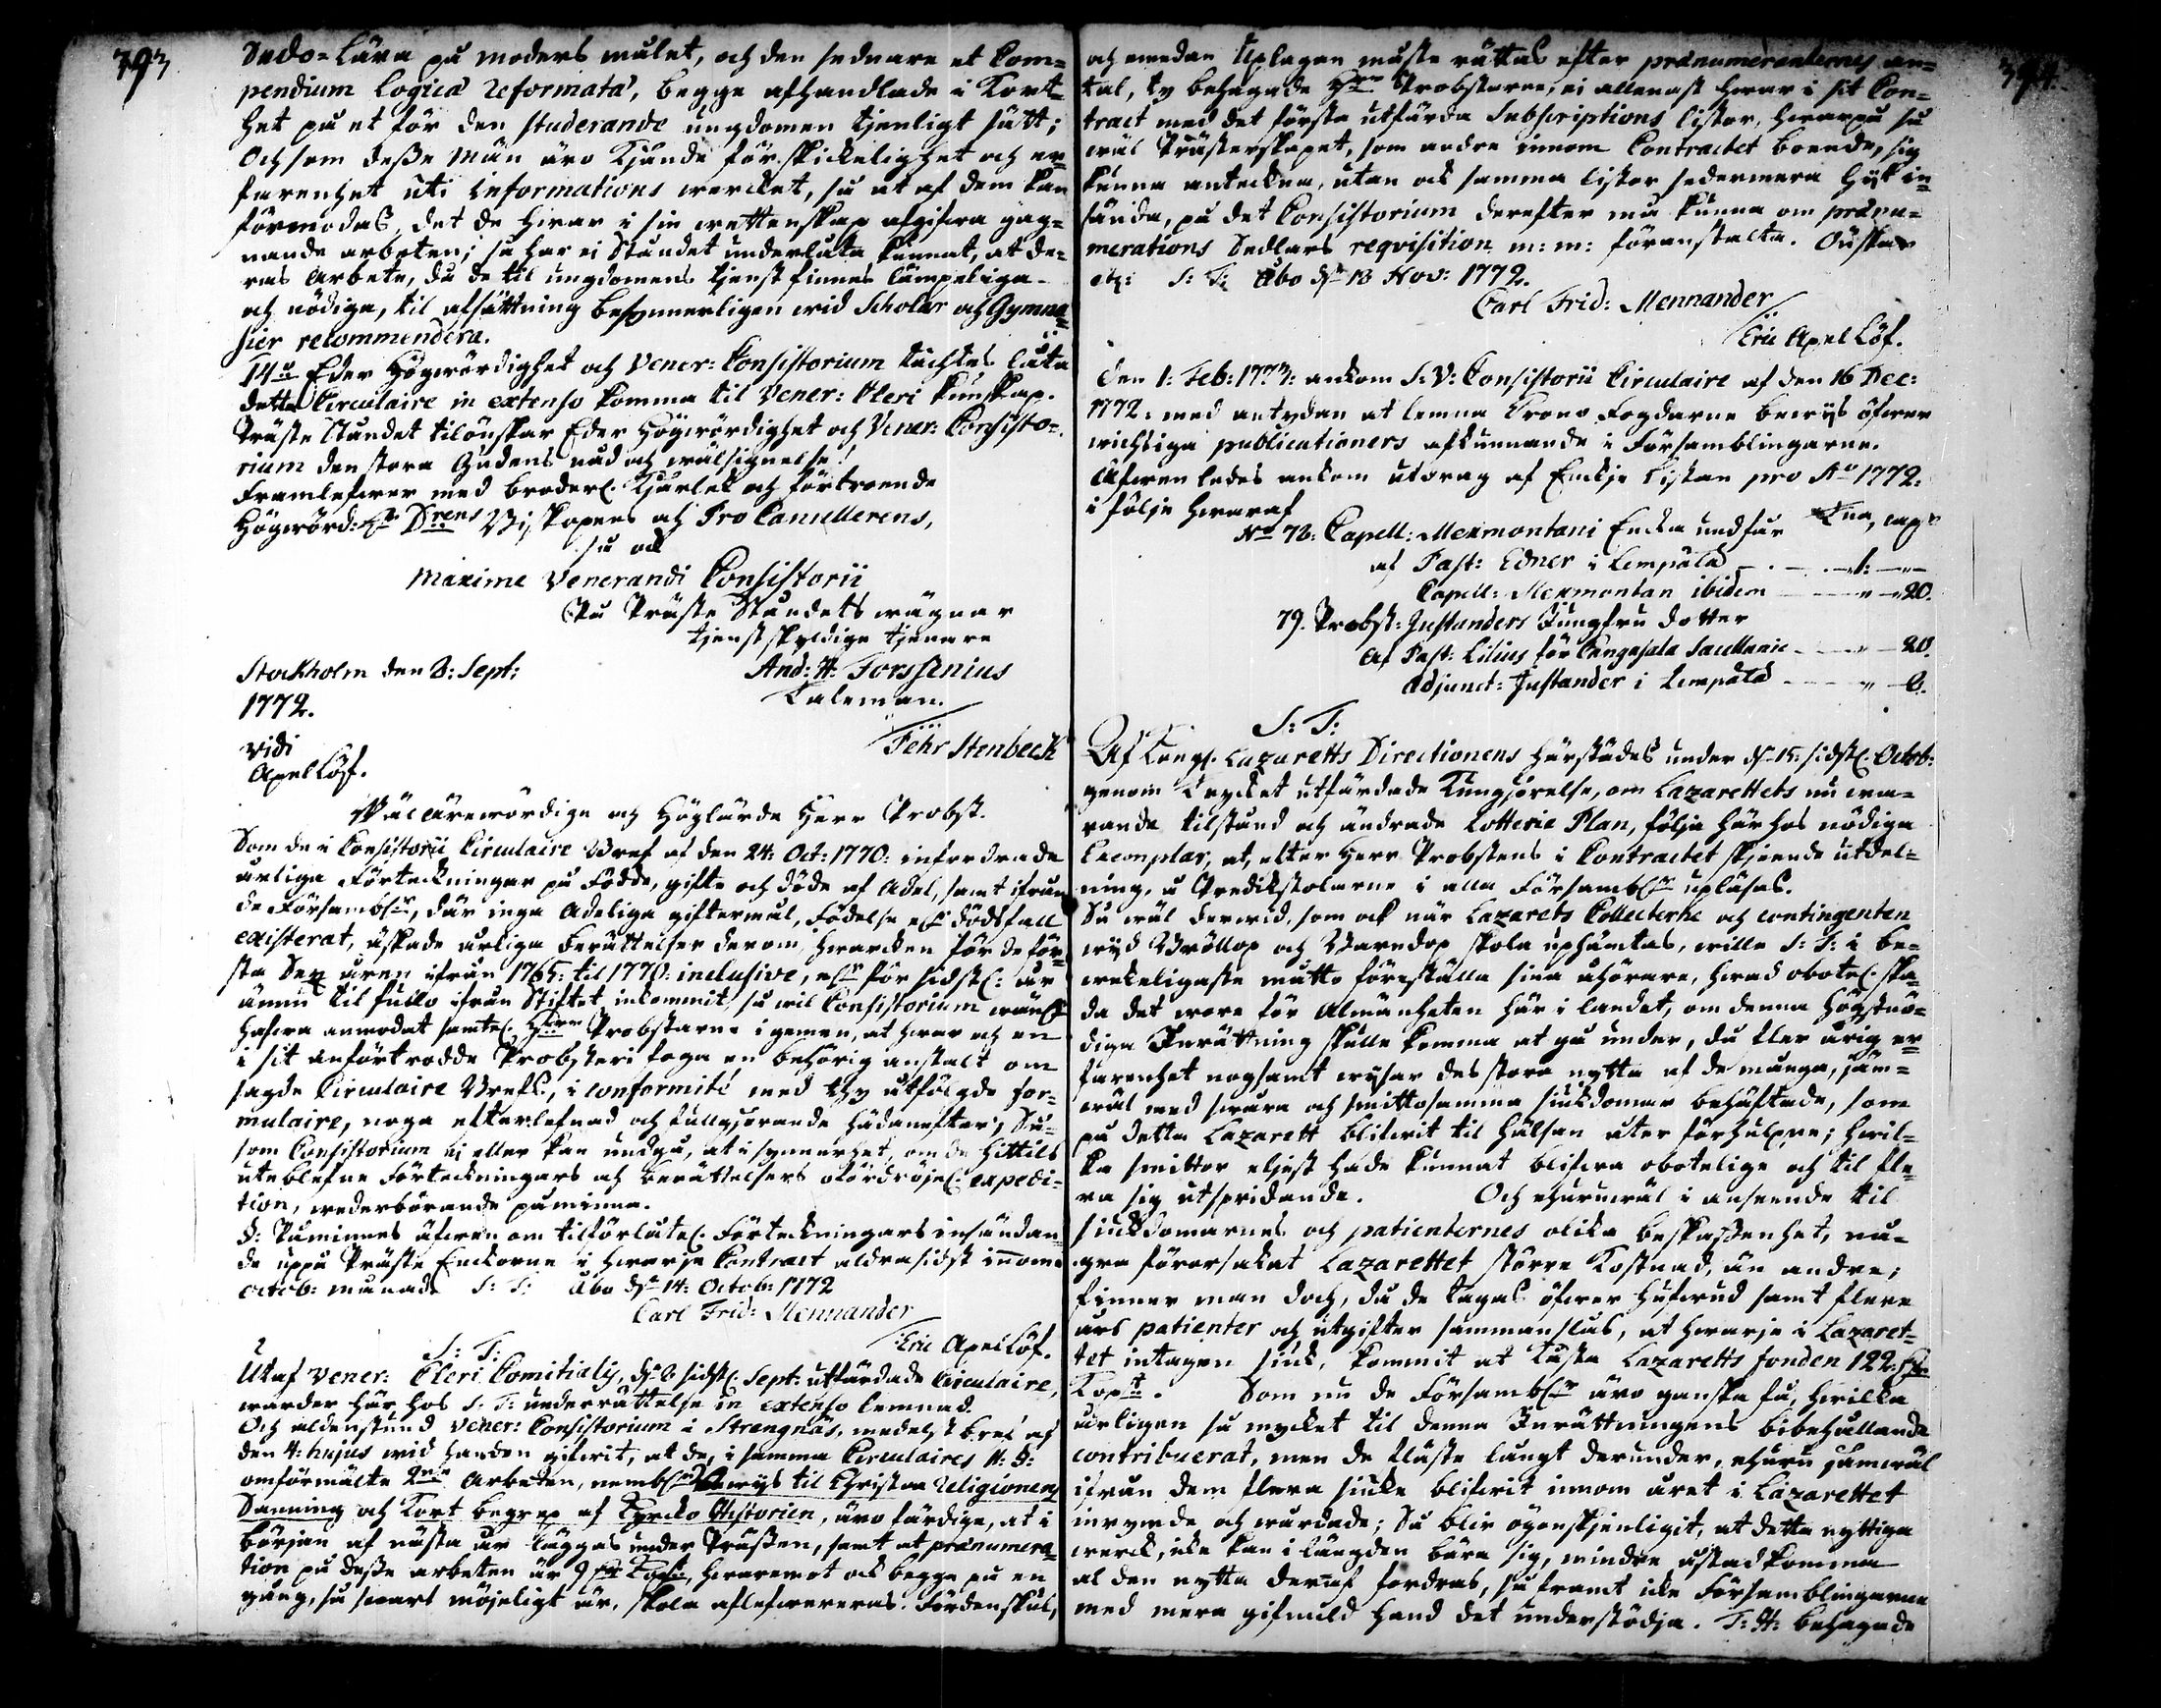 393
Sedo-Lära på moders målet, och den sednare et Com=
pendium Logica reformata, begge afhandlade i Kort=
het på et för den studerande ungdomen tjenligt sätt;
Och som desse Män äro kjände för skickelighet och er=
farenhet uti informations wercket, så at af dem kan
förmodas, det de hwar i sin wettenskap afgifwa gag=
nande arbeten; så har ei Ståndet underlåta kunnat, at de=
ras Arbete, då de til ungdomens tjenst finnes lämpeliga
och nödiga, til afsättning besynnerligen wid Scholar och Gymna=
sier recommendera.
14o Eder Högwördighet och Vener: Consistorium täcktes låta
detta Circulaire in extenso komma til Vener: Cleri kunskap.
Präste Ståndet tilönskar Eder Högwördighet och Vener: Consisto=
rium den stora Gudens nåd och wälsignelse!
Framlefwer med broderl. Kjärlek och förtroende
Högwörd: Hr Drens Biskopens och Pro Cancellerens,
så ock
Maxime Venerandi Consistorii
På Präste Ståndets wägnar
tjenstskyldige tjenare
Stockholm den 8: Sept: And: H: Forssenius
1772. Taleman.
vidi Fehr Stenbeck
Apel Löf.
Wäl ärewördige och Höglärde Herr Probst.
Som de i Consistorii Circulaire Bref af den 24: Oct: 1770: infordrade
årliga Förteckningar på Födde, gifte och döde af Adel, samt ifrån
de Försambl:r, där inga Adeliga giftermål, Födelse el:r dödsfall
existerat, äskade årliga berättelser derom, hwarcken för de för=
sta Sex åren ifrån 1765: til 1770: inclusive, el:r för sidstl: år
ännu til fullo ifrån Stiftet inkommit, så wil Consistorium
hafwa anmodat samtel. Herrr Probstarne i gemen, at hwar och en
i sit anförtrodde Probsteri foga en behörig anstalt om
sagde Circulaire Brefs, i conformité med thy utfölgde for=
mulaire, noga efterlefnad och fullgjörande hädanefter; Så=
som Consistorium ej eller kan undgå, at i synnerhet, om de hittils
uteblefne Förteckningars och berättelsers ofördröjel. expedi=
tion, wederbörande påminna.
Påminnes äfwen om tilförlåtel. Förteckningars insändan=
de uppå Präste Enckorne i hwarje Contract aldrasidst innom
Octob: månad S: T: Åbo dn 14: Octob: 1772
Carl Frid: Mennander
Eric Apel Löf.
S: T:
Utaf Vener: Cleri Comitialis, dn 8 sidstl. Sept: utfärdade Circulaire,
warder här hos S: T: underrättelse in extenso lemnad.
Och aldenstund Vener: Consistorium i Strengnäs, medelst bref af
den 4: hujus wid handen gifwit, at de, i samma Circulaires 11: §:
omförmälte 2ne Arbeten, nembl:n Bewys til Christna Religionens
Sanning och Kort begrep af Kyrcko Historien, äro färdige, at i
början af nästa år läggas under Pressen, samt at prænumera=
tion på desse arbeten är 9 Kopt, hwaremot ock begge på en
gång, så snart möjeligt är, skola aflefwereras. Fördenskul,
394.
och emedan Uplagan måste rättas efter prænumeranternes an=
tal, ty behagade Hrr Probstarne, ei allenast hwar i sit Con=
tract med det första utfärda Subscriptions listor, hwarpå så
wäl Prästerskapet, som andre innom Contractet boende, sig
kunna anteckna, utan ock samma listor sedermera hijt in=
sända, på det Consistorium derefter må kunna om prænu=
merations Sedlars reqvisition m: m: föranstalta. Önskar
etz: S: T: Åbo dn 18 Nov: 1772.
Carl Frid: Mennander
Eric Apel Löf.
Den 1: Feb: 1773: ankom S: V: Consistorii Circulaire af den 16 Dec:
1772: med antydan at lemna Krono Fogdarne bewys öfwer
wichtiga publicationers afkunnande i Församblingarne.
Äfwenledes ankom utdrag af Enckje Listan pro Ao 1772:
i följe hwaraf
No 72: Capell: Mexmontani Encka undfår Tna, cap:
af Past: Edner i Lempälä 1:
Capell: Mexmontan ibidem 20.
79. Probst: Justanders Jungfru dotter
Af Past: Lilius för Cangasala Sacellanie 20.
Adjunct: Justander i Lempälä 8.
S: T:
Af Kongl. Lazaretts Directionens härstädes under dn 15: sidstl. Octob:
genom Trycket utfärdade Kungjörelse, om Lazarettets nu wa=
rande tilstånd och ändrade Lotterie Plan, följa här hos nödiga
Exemplar, at, efter Herr Probstens i Contractet skjeende utdel=
ning, å Predikstolarne i alla Försambl:r upläsas.
Så wäl derwid, som ock när Lazarets Collecterne och contingenten
wijd Bröllop och Barndop skola uphämtas, wille S: T: i be=
wekeligaste måtto föreställa sina åhörare, hwad obotel. ska=
da det wore för Almänheten här i landet, om denna högstnö=
diga Inrättning skulle komma at gå under, då fler årig er=
farenhet nogsamt wysar des stora nytta af de många, jäm=
wäl med swåra och smittosamma sjukdomar behäftade, som
på detta Lazarett blifwit til hälsan åter förhulpne; hwil=
ka smittor eljest hade kunnat blifwa obotelige och til fle=
ra sig utspridande. Och ehuruwäl i anseende til
siukdomarnes och patienternes olika beskaffenhet, nå=
gra förorsakat Lazarettet större Kostnad, än andre;
finner man doch, då de tagas öfwer hufwud samt flere
års patienter och utgifter sammanslås, at hwarje i Lazaret=
tet intagen siuk, kommit at kosta Lazaretts fonden 122:
Kopt. Som nu de Försambl:r äro ganska få, hwilka
årligen så mycket til denna Inrättningens bibehållande
contribuerat, men de fläste långt derunder, ehuru jämwäl
ifrån dem flera siuke blifwit innom året i Lazarettet
inrymde och wårdade; Så blir ögonskjenligit, at detta nyttiga
werck, icke kan i längden bära sig, mindre åstad komma
al den nytta deraf fordras, så framt icke Församblingarne
med mera gifmild hand det understödja. T: H: behagade